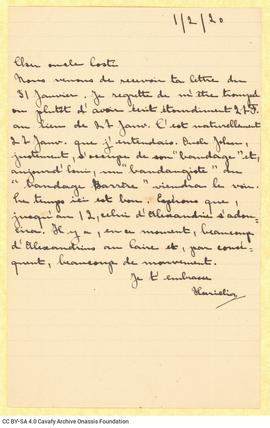 1/2/20
Cher oncle Costi
Nous venons de recevoir ta lettre du
31 Janvier. Je regrette de m'être trompé
ou plutôt d'avoir écrit étourdiment
au lieu de 27 Janv. C'est naturellement
27 Janv. que j'entendais. Oncle John,
justement, s'occupe de son "bandage" et,
aujourd'hui, un "bandagiste" du
"bandage Barrère" viendra le voir.
Le temps ici est bon. Espérons que,
jusqu'au 12, celui d'Alexandrie s'adou-
cira. Il y a, en ce moment, beaucoup
d'Alexandrins au Caire et, par consé-
quent, beaucoup de mouvement.
Je t'embrasse
CC BY-SA 4.0 Cavafy Archive Onassis Foundation